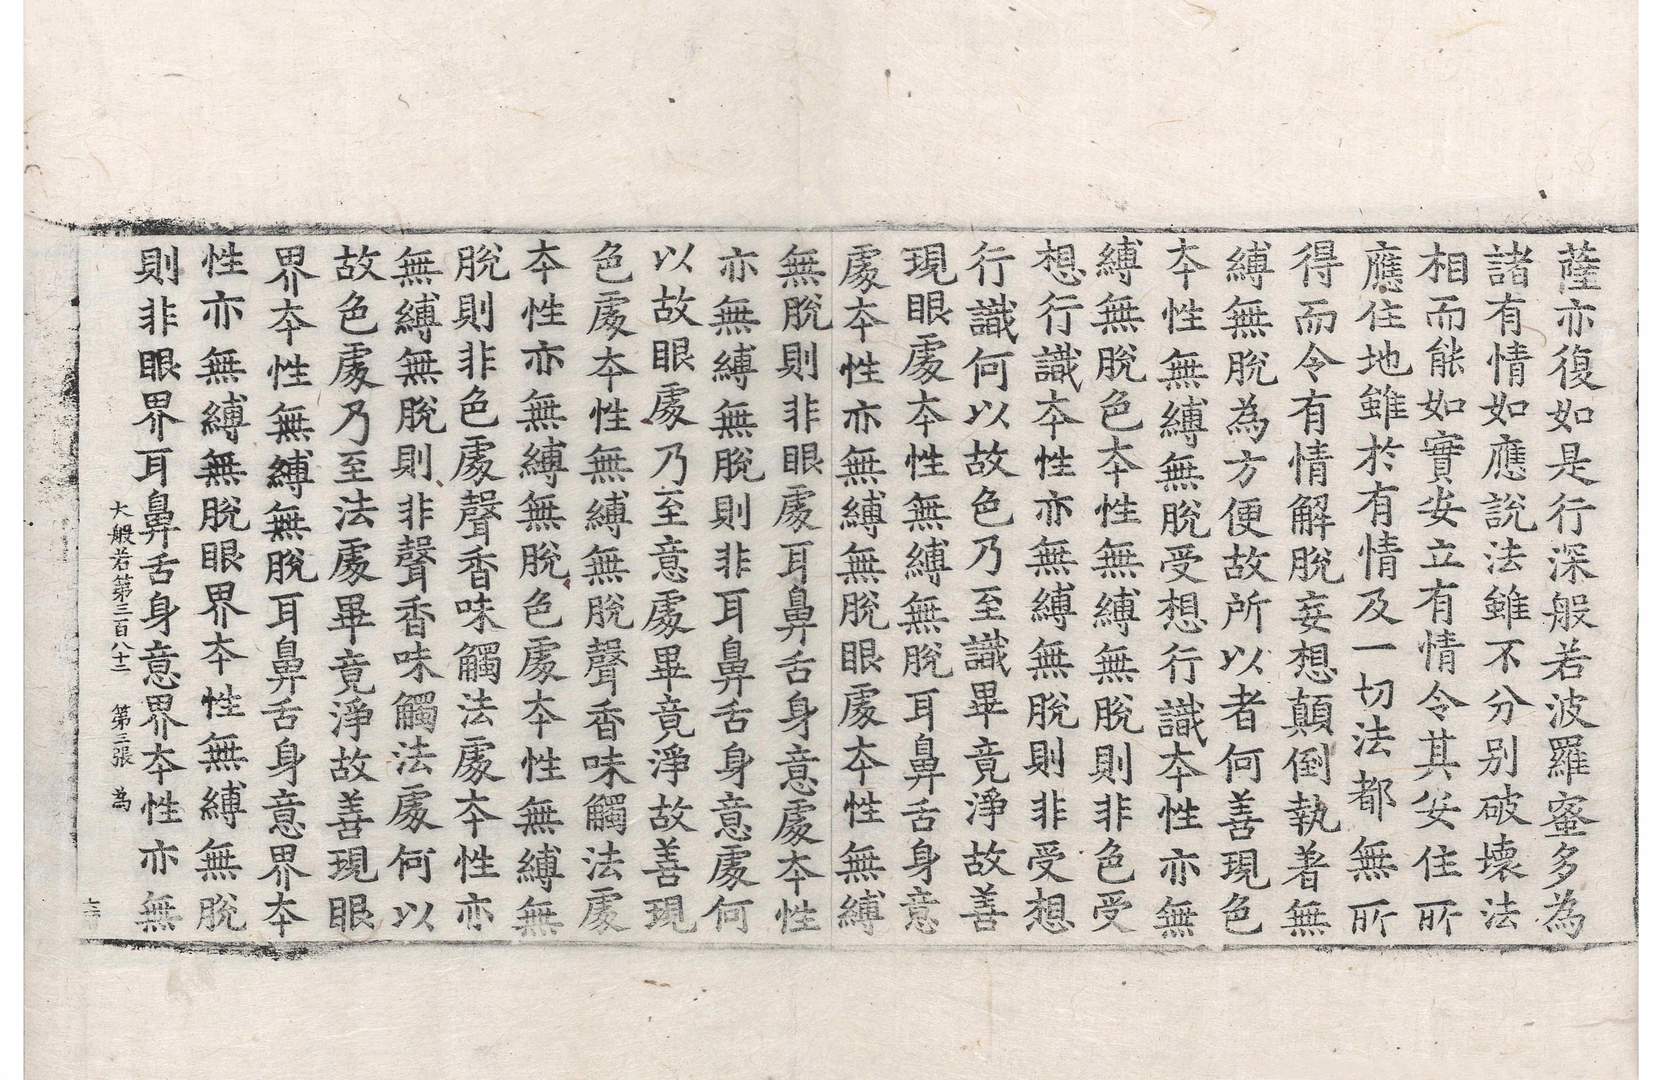 薩亦復如是行深般若波羅蜜多為
諸有情如應說法雖不分別破壞法
相而能如實安立有情令其安住所
應住地雖於有情及一切法都無所
得而令有情解脫妄想顛倒執著無
縛無脫為方便故所以者何善現色
本性無縛無脫受想行識本性亦無
縛無脫色本性無縛無脫則非色受
想行識本性亦無縛無脫則非受想
行識何以故色乃至識畢竟淨故善
現眼處本性無縛無脫耳鼻舌身意
處本性亦無縛無脫眼處本性無縛
無脫則非眼處耳鼻舌身意處本性
亦無縛無脫則非耳鼻舌身意處何
以故眼處乃至意處畢竟淨故善現
色處本性無縛無脫聲香味觸法處
本性亦無縛無脫色處本性無縛無
脫則非色處聲香味觸法處本性亦
無縛無脫則非聲香味觸法處何以
故色處乃至法處畢竟淨故善現眼
界本性無縛無脫耳鼻舌身意界本
性亦無縛無脫眼界本性無縛無脫
則非眼界耳鼻舌身意界本性亦無
大般若第三百八十二 第三張 為